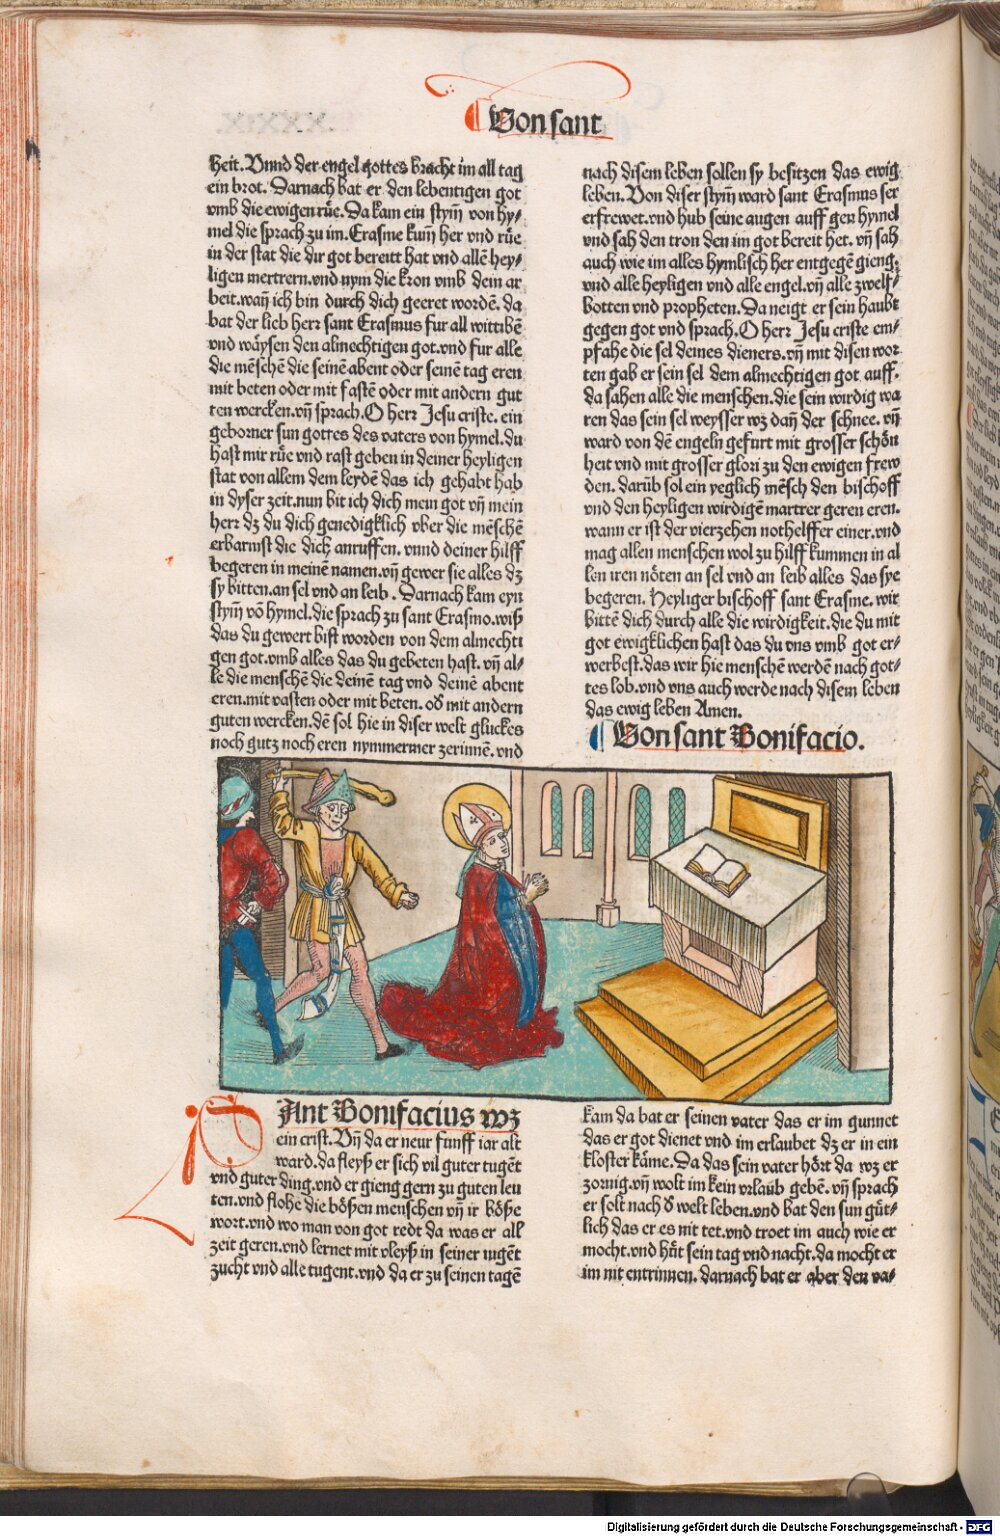 Von sant
heit. Vnnd der engel gottes bracht im all tag
ein brot. Darnach bat er den lebentigen got
vmb die ewigen růe. Da kam ein stym̄ von hy⸗
mel die sprach zu im. Erasme kum̄ her vnd růe
in der stat die dir got bereitt hat vnd allē hey⸗
ligen mertrern. vnd nym die kron vmb dem ar
beit. wan̄ ich bin durch dich geeret wordē. da
bat der lieb herr sant Erasmus fur all wittibē
vnd wäysen den almechtigen got. vnd fur alle
die mēschē die seinē abent oder seinē tag eren
mit beten oder mit fastē oder mit andern gut
ten wercken. vn̄ sprach. O herr Jesu criste. ein
geborner sun gottes des vaters von hymel. du
hast mir růe vnd rast geben in deiner heyligen
stat von allem dem leydē das ich gehabt hab
in dyser zeit. nun bit ich dich mein got vn̄ mein
herr dz du dich genedigklich vber die mēschē
erbarmst die dich anruffen. vnnd deiner hilff
begeren in meinē namen. vn̄ gewer sie alles dz
sy bitten. an sel vnd an leib. Darnach kam eyn
stym̄ vō hymel. die sprach zu sant Erasmo. wiß
das du gewert bist worden von dem almechti
gen got. vmb alles das du gebeten hast. vn̄ al⸗
le die menschē die deinē tag vnd deinē abent
eren. mit vasten oder mit beten. od̄ mit andern
guten wercken. dē sol hie in diser welt gluckes
noch gutz noch eren nymmermer zerinnē. vnd
nach disem leben sollen sy besitzen das ewig
leben. Von diser stym̄ ward sant Erasmus ser
erfrewet. vnd hub seine augen auff gen hymel
vnd sah den tron den im got bereit het. vn̄ sah
auch wie im alles hymlisch her entgegē gieng.
vnd alle heyligen vnd alle engel. vn̄ alle zwelf⸗
botten vnd propheten. Da neigt er sein haubt
gegen got vnd sprach. O herr Jesu criste em⸗
pfahe die sel deines dieners. vn̄ mit disen wor
ten gab er sein sel dem almechtigen got auff.
da sahen alle die menschen. die sein wirdig wa
ren das sein sel weysser wz dan̄ der schnee. vn̄
ward von dē engeln gefurt mit grosser schön
heit vnd mit grosser glori zu den ewigen frew
den. darūb sol ein yeglich mēsch den bischoff
vnd den heyligen wirdigē martrer geren eren.
wann er ist der vierzehen nothelffer einer. vnd
mag allen menschen wol zu hilff kummen in al
len iren nöten an sel vnd an leib alles das sye
begeren. Heyliger bischoff sant Erasme. wir
bittē dich durch alle die wirdigkeit. die du mit
got ewigklichen hast das du vns vmb got er⸗
werbest. das wir hie menschē werdē nach got⸗
tes lob. vnd vns auch werde nach disem leben
das ewig leben Amen.
Von sant Bonifacio.
Ant Bonifacius wz
ein crist. Vn̄ da er neur funff iar alt
ward. da fleyß er sich vil guter tugēt
vnd guter ding. vnd er gieng gern zu guten leu
ten. vnd flohe die bößen menschen vn̄ ir böße
wort. vnd wo man von got redt da was er all
zeit geren. vnd lernet mit vleyß in seiner iugēt
zucht vnd alle tugent. vnd da er zu seinen tagē
kam da bat er seinen vater das er im gunnet
das er got dienet vnd im erlaubet dz er in ein
kloster käme. Da das sein vater hört da wz er
zornig. vn̄ wolt im kein vrlaub gebē. vn̄ sprach
er solt nach d̄ welt leben. vnd bat den sun güt⸗
lich das er es nit tet. vnd troet im auch wie er
mocht. vnd hüt sein tag vnd nacht. da mocht er
im nit entrinnen. darnach bat er aber den va⸗
Digitalisierung gefördert durch die Deutsche Forschungsgemeinschaft - DFG